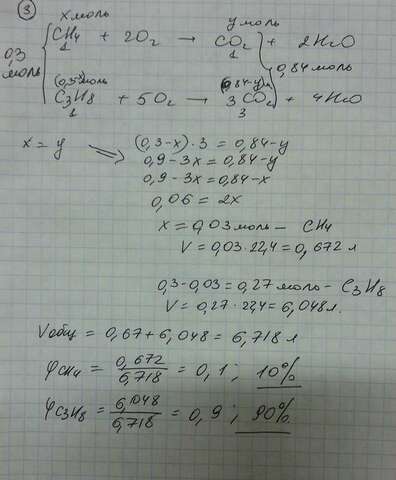 3
x моль y моль
0,3 моль CH4 + 2O2 → CO2 + 2H2O
1 1
0,84 моль
(0,3-x) моль (0,84-y)
C3H8 + 5O2 → 3CO2 + 4H2O
1 3
x = y ⟹ (0,3-x)·3 = 0,84-y
0,9-3x = 0,84-y
0,9-3x = 0,84-x
0,06 = 2x
x = 0,03 моль – CH4
V = 0,03·22,4 = 0,672 л
0,3-0,03 = 0,27 моль – C3H8
V = 0,27·22,4 = 6,048 л.
Vобщ = 0,67 + 6,048 = 6,718 л
φCH4 = 0,672 / 6,718 = 0,1; 10%
φC3H8 = 6,048 / 6,718 = 0,9; 90%